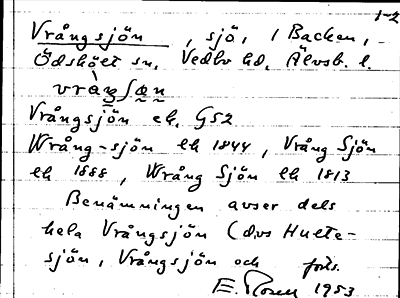 1-2
Vrångsjön, sjö, i Backen,
Ödskölt sn. Vedbo hd. Älvsb. l.
Vrångsjön ek. G52
Wrång-sjön lk 1844, Vrång Sjön
lk 1888, Wrång Sjön lk 1813
Benämningen avser dels
hela Vrångsjön (dvs Hulte-
sjön, Vrångsjön och forts.
E. Rosen 1953